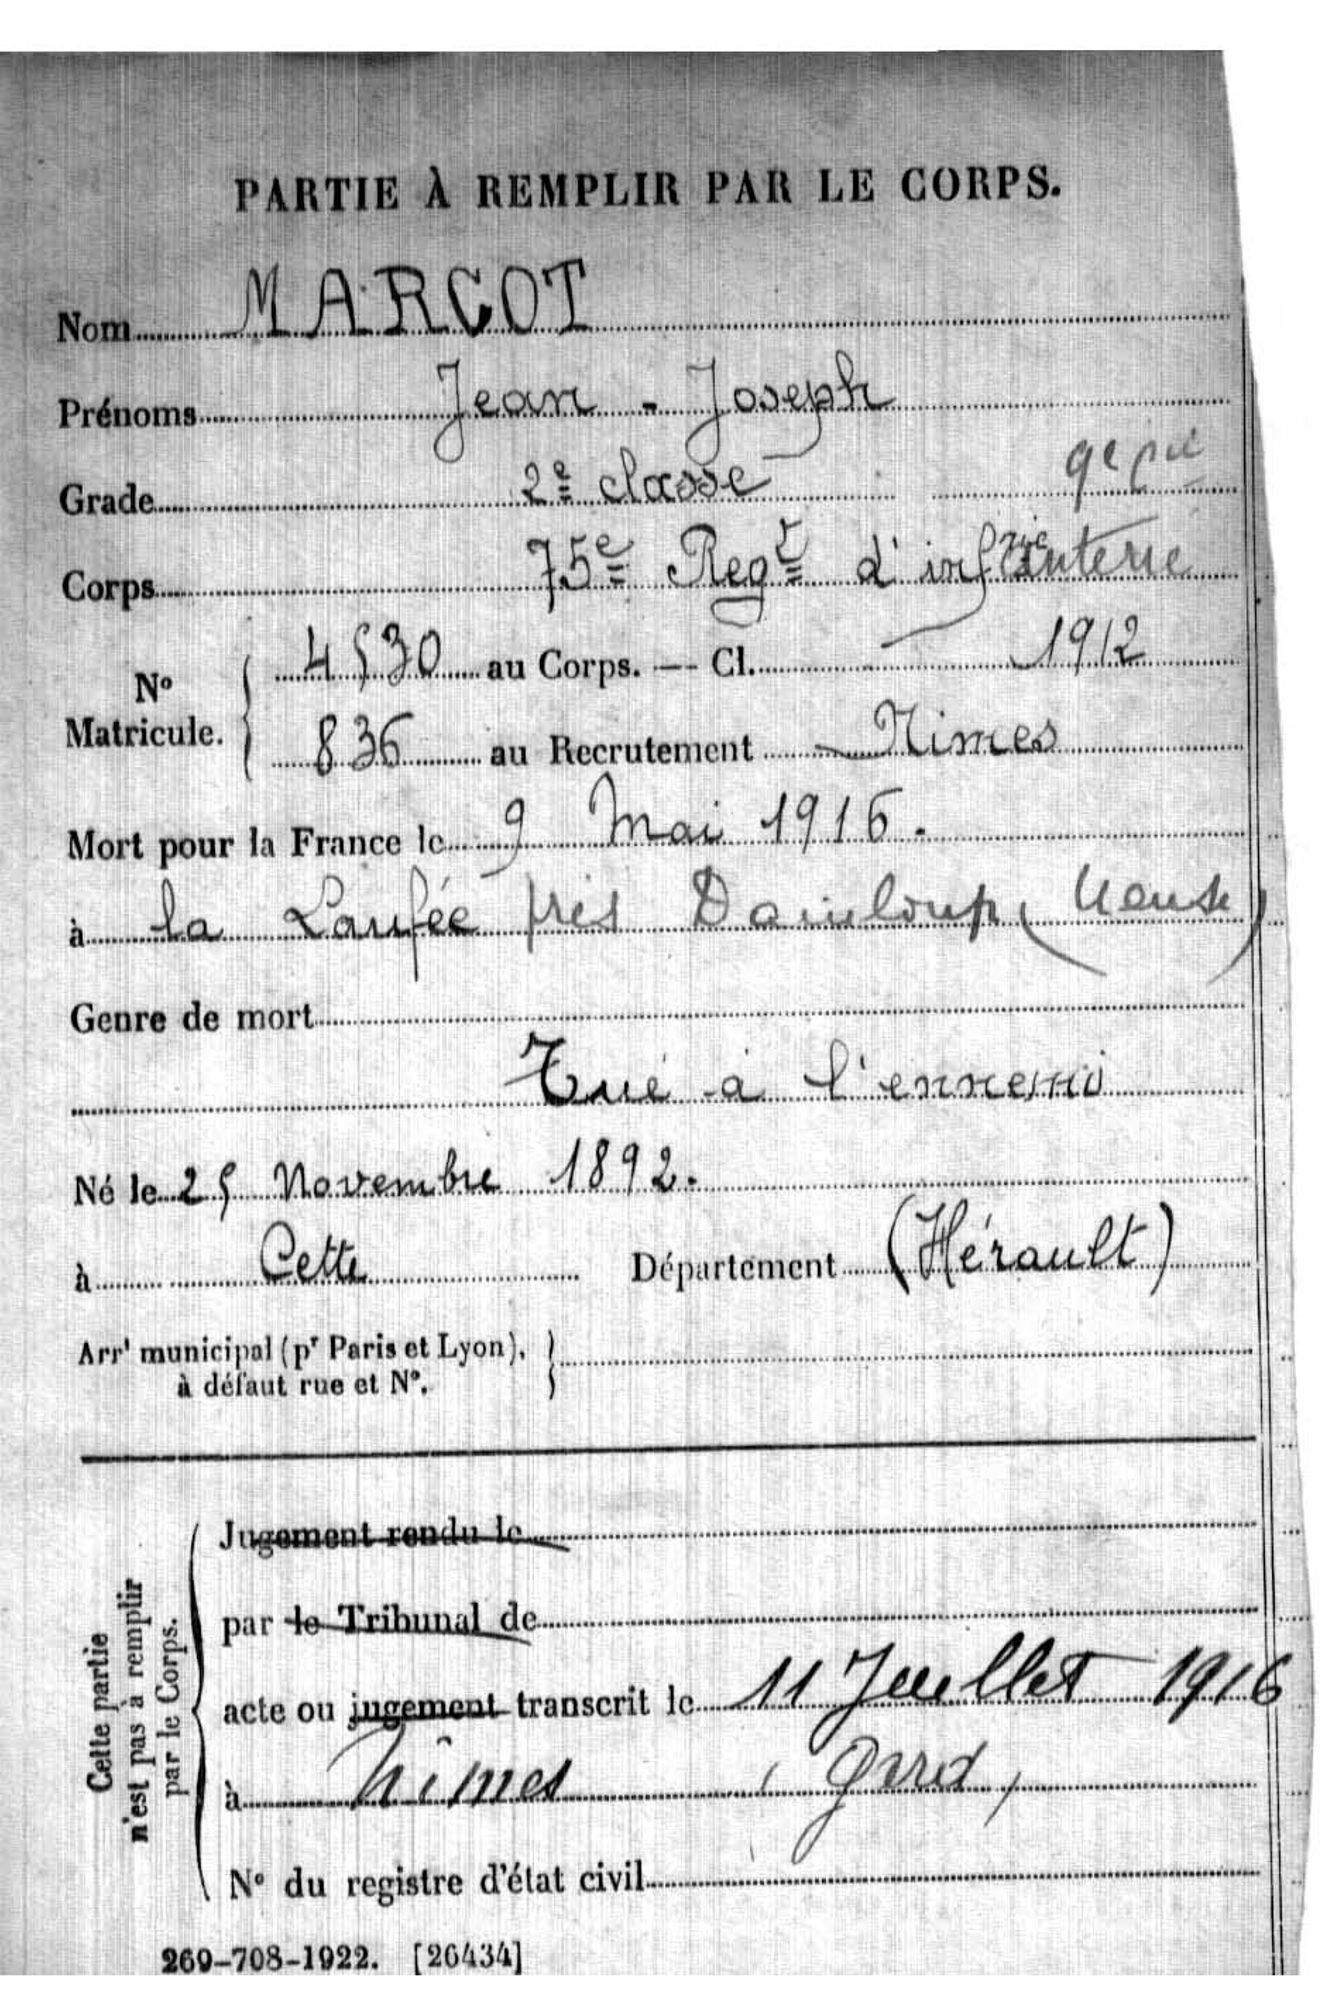 PARTIE À REMPLIR PAR LE CORPS.
Nom MARCOT
Prénoms Jean - Joseph
Grade 2e classe 9e Cie
Corps 75e Regt d'infanterie
N° Matricule. 4530 au Corps. — Cl. 1912
836 au Recrutement Nimes
Mort pour la France le 9 Mai 1916.
à la Laufée près Damloup (Meuse)
Genre de mort
Tué à l'ennemi
Né le 25 Novembre 1892.
à Cette Département (Hérault)
Arrt municipal (pr Paris et Lyon),
à défaut rue et N°.
Cette partie
n'est pas à remplir
par le Corps.
Jugement rendu le
par le Tribunal de
acte ou jugement transcrit le 11 Juillet 1916
à Nîmes (Gard)
N° du registre d'état civil
269-708-1922. [26434]